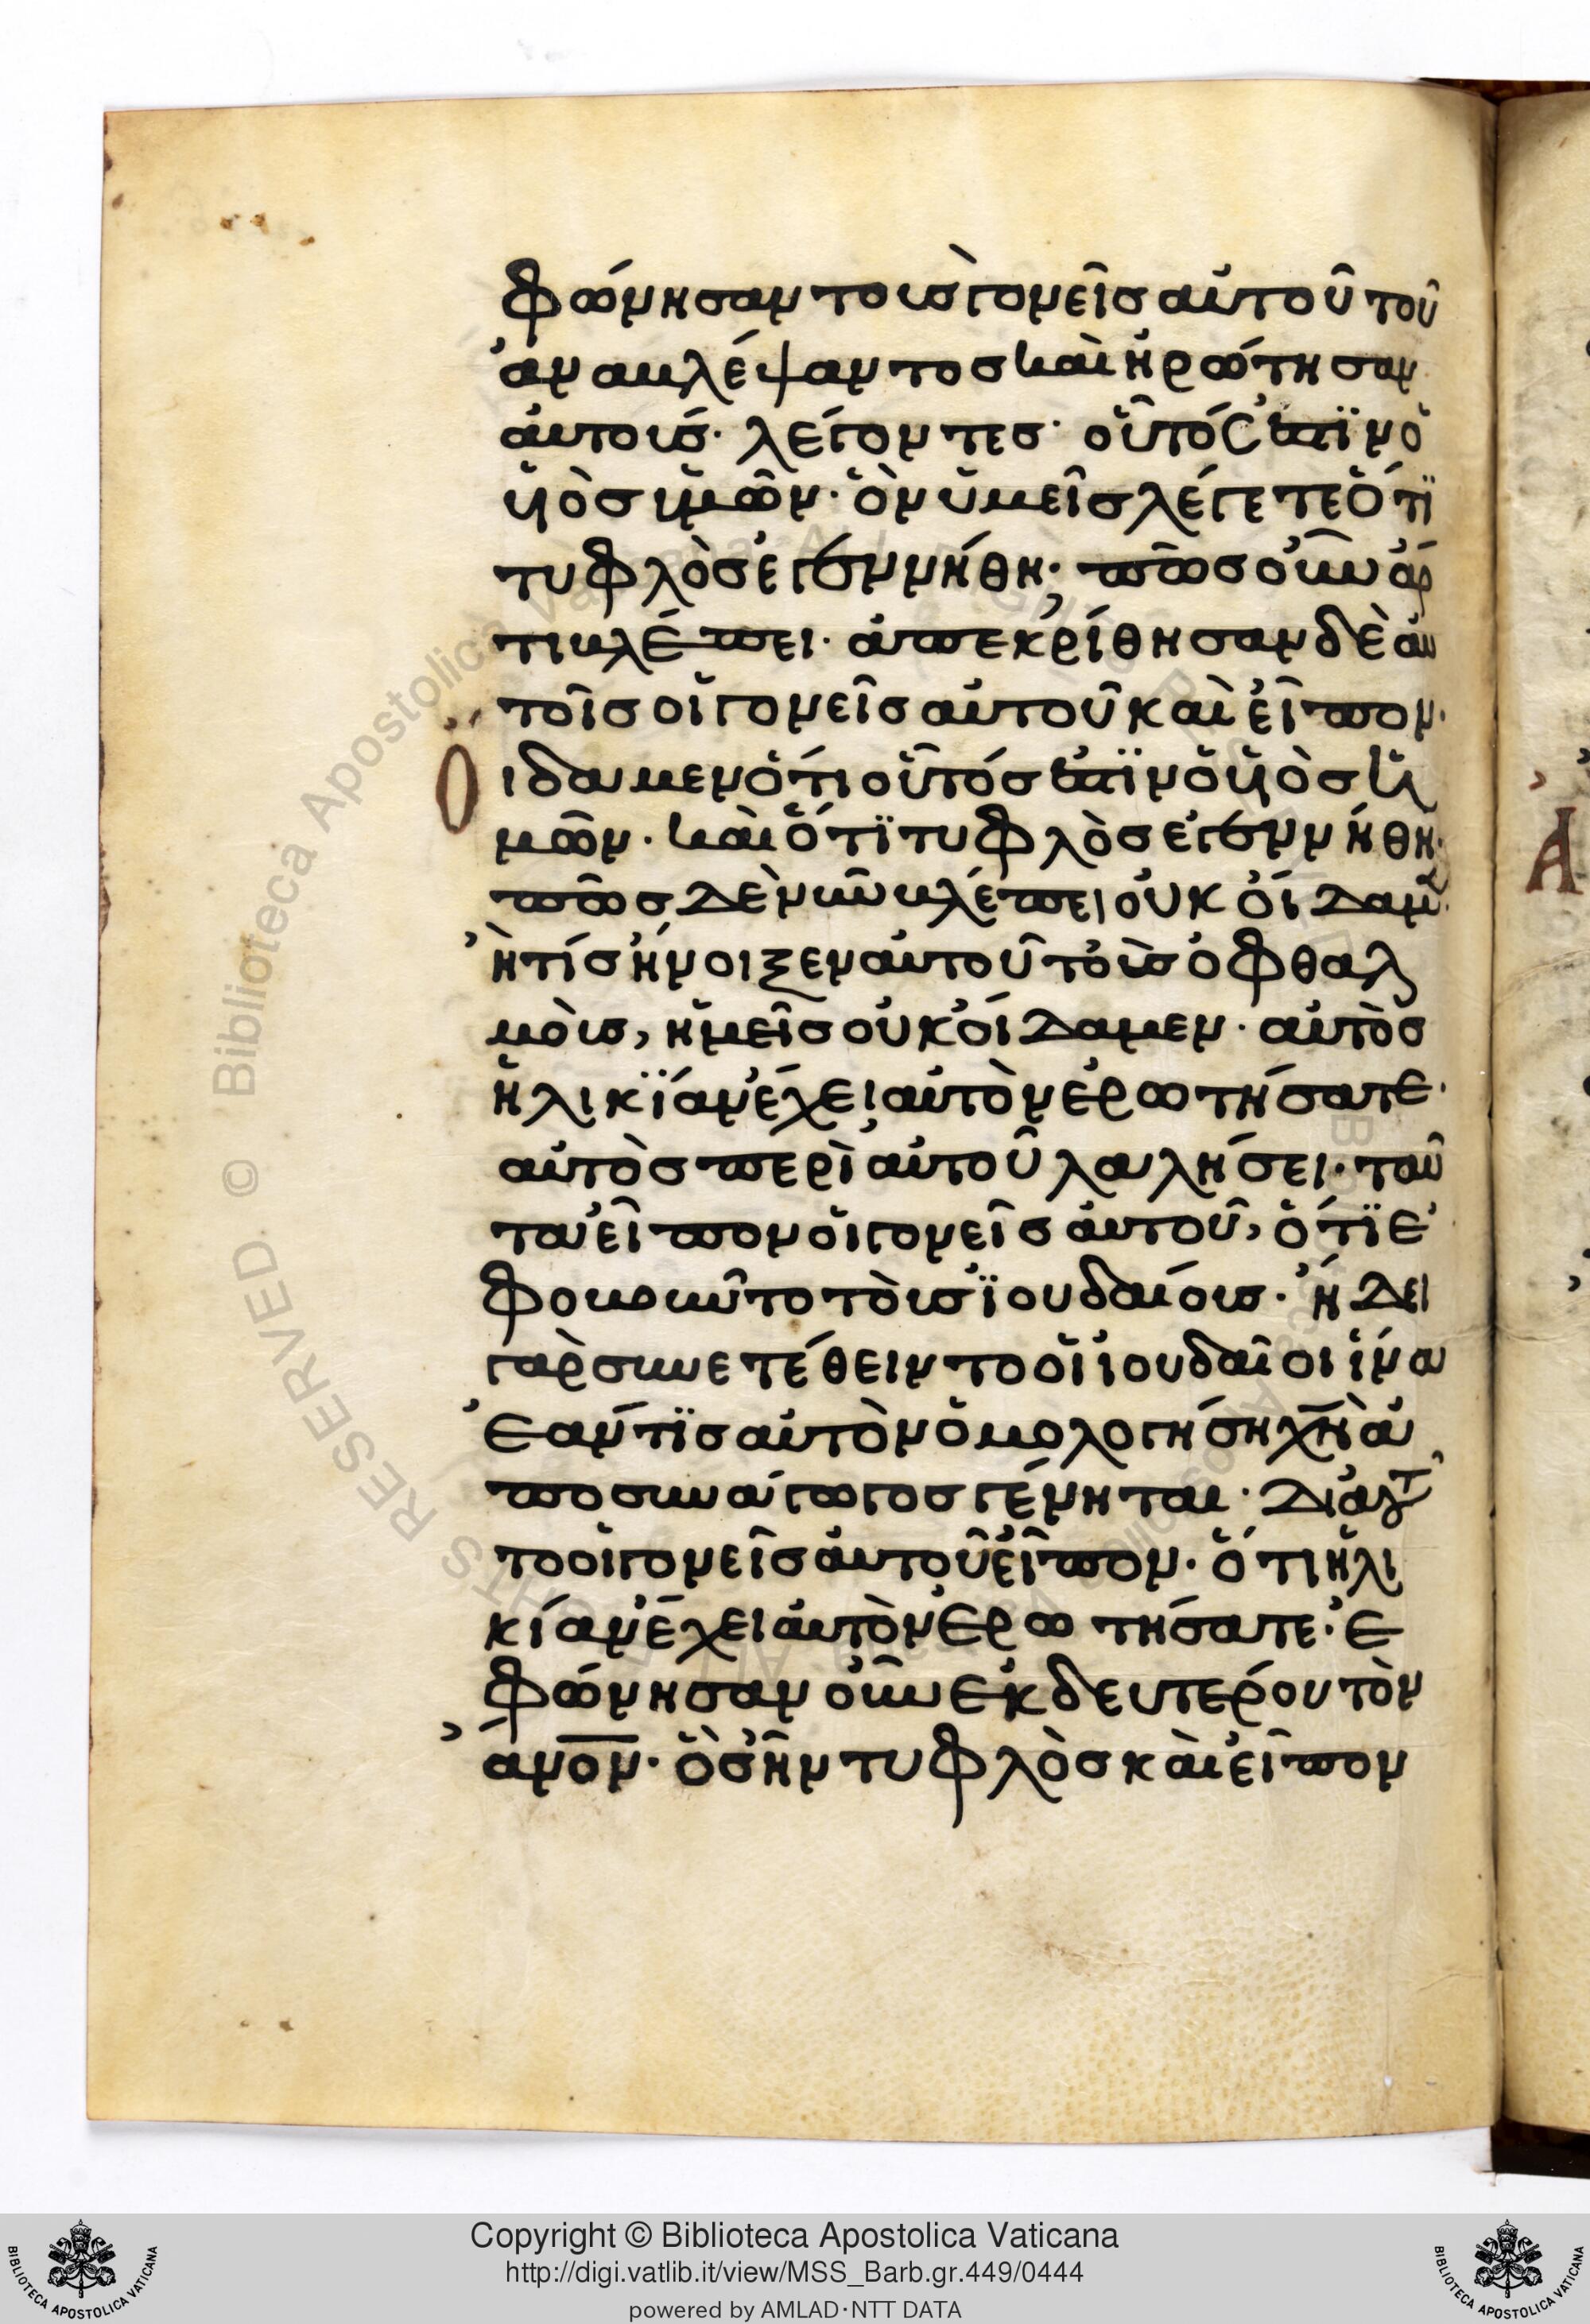 φώνησαν τοὺσ γονεῖσ αὐτοῦ τοῦ
ἀναβλέψαντοσ καὶ ἠρώτησαν
αὐτοὺσ· λέγοντεσ· οὗτόσ ἐστϊν ὁ
ὑϊὸσ ὑμῶν· ὃν ὑμεῖσ λέγετε ὅτϊ
τυφλὸσ ἐγεννήθη· πῶσ οὖν ἄρ
τι βλέπει· ἀπεκρίθησαν δὲ αὐ
τοῖσ οἱ γονεῖσ αὐτοῦ καὶ εἶπον·
Οἴδαμεν ὅτι οὗτόσ ἐστϊν ὁ ὑϊὸσ ἡ
μῶν· καὶ ὅτϊ τυφλὸσ ἐγεννήθη·
πῶσ δὲ νῦν βλέπει οὐκ οἴδαμεν·
ἢ τίσ ἤνοιξεν αὐτοῦ τοὺσ ὀφθαλ
μοὺσ, ἡμεῖσ οὐκ οἴδαμεν· αὐτὸσ
ἡλικϊάν ἔχει αὐτὸν ἐρωτήσατε·
αὐτὸσ περὶ αὐτοῦ λαλήσει· ταῦ
τα εἶπον οἱ γονεῖσ αὐτοῦ, ὅτϊ ἐ
φοβοῦντο τοὺσ ϊουδαίουσ· ἤδει
γὰρ συνετέθειντο οἱ ἰουδαῖοι ἵνα
ἐάν τϊσ αὐτὸν ὁμολογήσῃ χν̅ ἀ
ποσυνάγωγοσ γένηται· Διὰ τοῦ
το οἱ γονεῖσ αὐτοῦ εἶπον· ὅτι ἡλι
κίαν ἔχει αὐτὸν ἐρωτήσατε· ἐ
φώνησαν οὖν ἐκ δευτέρου τὸν
ἄν̅ο̅ν̅· ὃσ ἦν τυφλὸσ καὶ εἶπον
Copyright © Biblioteca Apostolica Vaticana
http://digi.vatlib.it/view/MSS_Barb.gr.449/0444
powered by AMLAD·NTT DATA
BIBLIOTECA APOSTOLICA VATICANA
BIBLIOTECA APOSTOLICA VATICANA